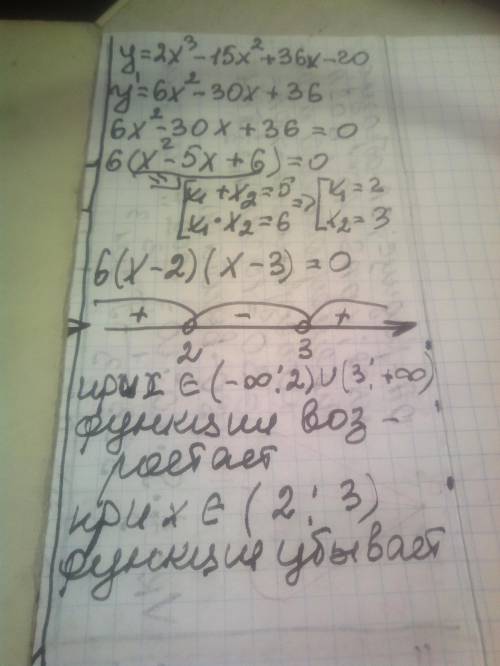 y=2x³-15x²+36x-20
y'=6x²-30x+36
6x²-30x+36=0
6(x²-5x+6)=0
[x₁+x₂=5 => [x₁=2
[x₁·x₂=6 [x₂=3
6(x-2)(x-3)=0
+ - +
2 3
при x ∈ (-∞;2)∪(3;+∞)
функция воз-
ростает
при x ∈ (2;3)
функция убывает